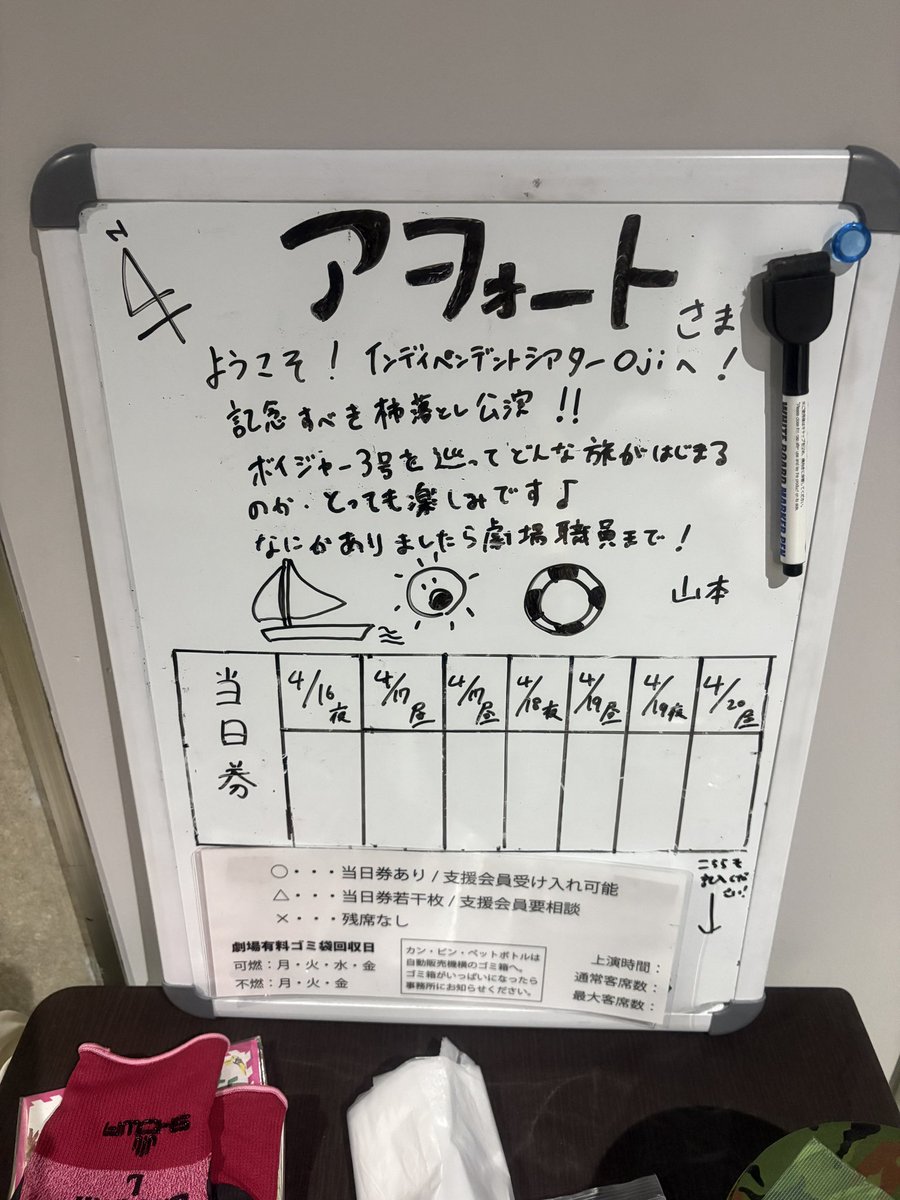 アヲォート
さま
ようこそ！ インディペンデントシアターOjiへ！
記念すべき柿落とし公演!!
ボイジャー3号を巡ってどんな旅がはじまる
のか・とっても楽しみです♪
なにかありましたら劇場職員まで！
山本
当日券
4/16夜 4/17昼 4/17昼 4/18夜 4/19昼 4/19夜 4/20昼
こちらも
記入くだ
さい！
○・・・当日券あり / 支援会員受け入れ可能
△・・・当日券若干枚 / 支援会員要相談
×・・・残席なし
劇場有料ゴミ袋回収日
可燃：月・火・水・金
不燃：月・火・金
カン・ビン・ペットボトルは
自動販売機横のゴミ箱へ。
ゴミ箱がいっぱいになったら
事務所にお知らせください。
上演時間：
通常客席数：
最大客席数：
WHITE BOARD MARKER PEN
7